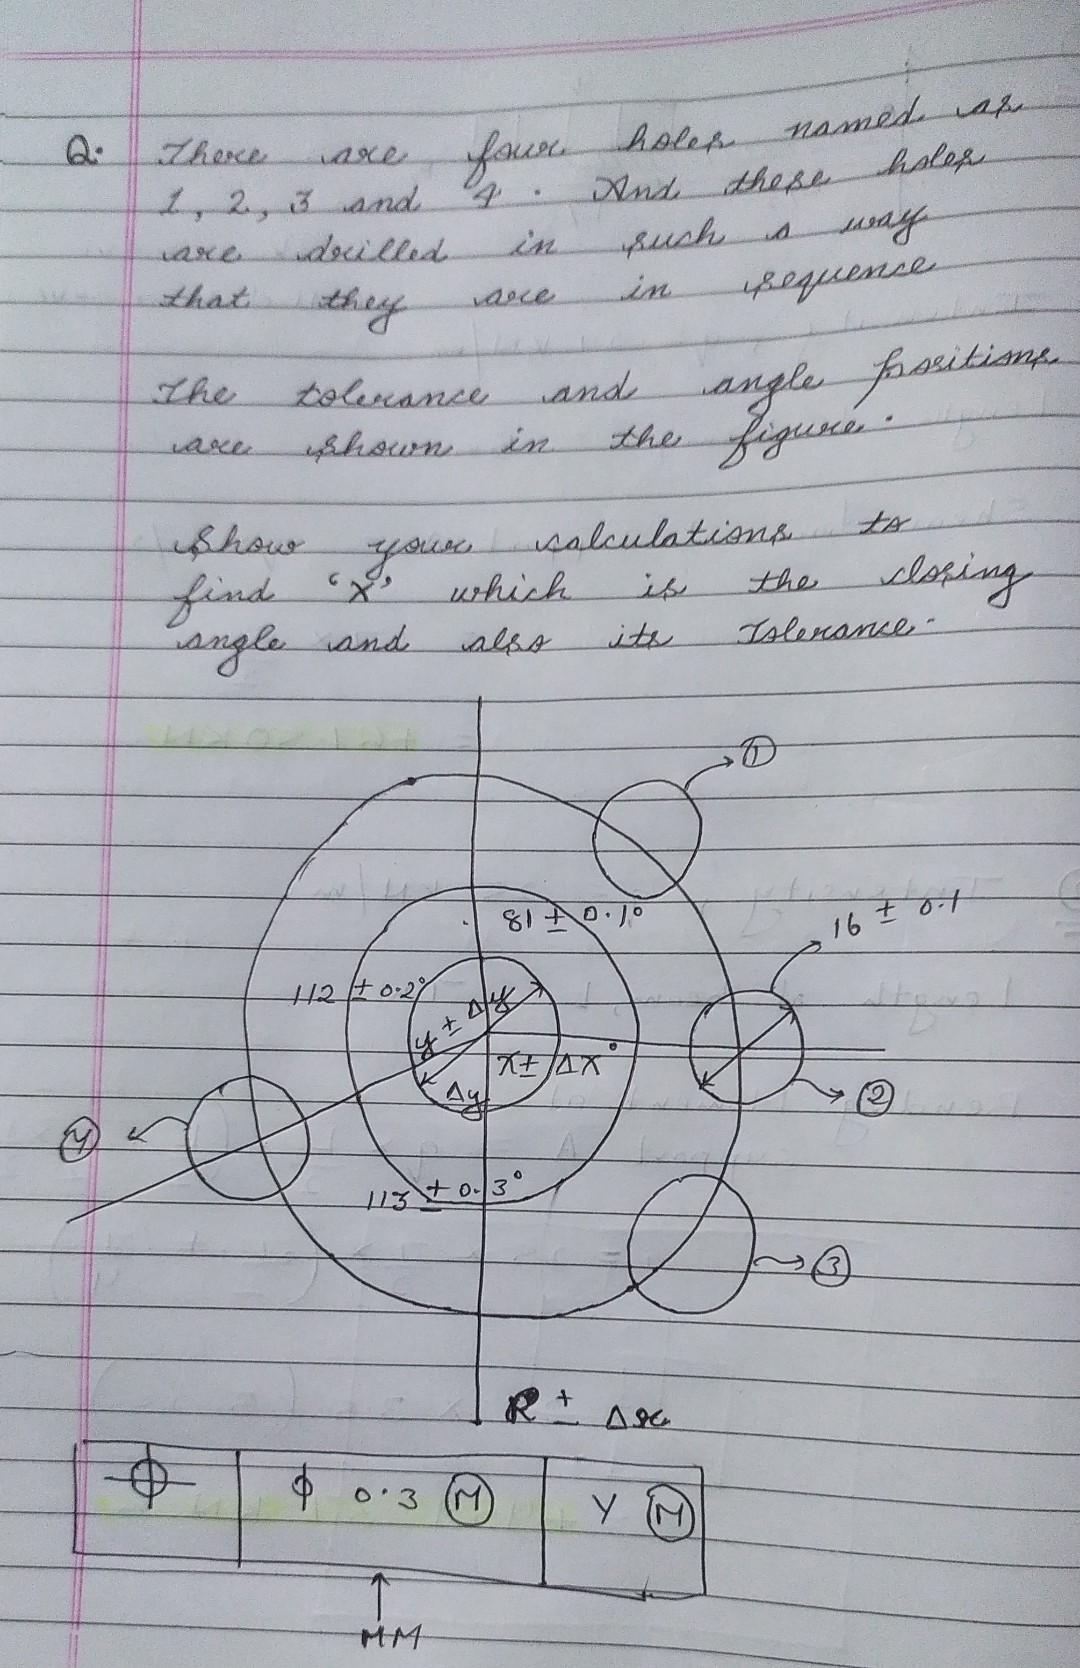 Q. There are four holes named as
1, 2, 3 and 4. And these holes
are drilled in such a way
that they are in sequence
The tolerance and angle positions
are shown in the figure.
Show your calculations to
find 'X' which is the closing
angle and also its Tolerance.
1
81 ± 0.1°
16 ± 0.1
112 ± 0.2°
y ± Δy
X ± ΔX°
Δy
2
4
113 ± 0.3°
3
R ± Δr
⌖ ϕ 0.3 Ⓜ Y Ⓜ
↑
MM